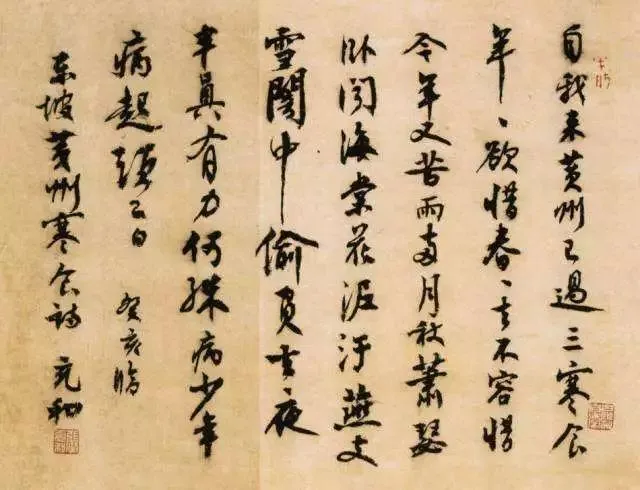 自我来黄州已過三寒食
年、欲惜春、去不容惜
今年又苦雨兩月秋蕭瑟
卧聞海棠花泥汙燕支
雪闇中偷負去、夜
半真有力何殊病少年
病起頭已白
癸亥臨
東坡黄州寒食詩 充和